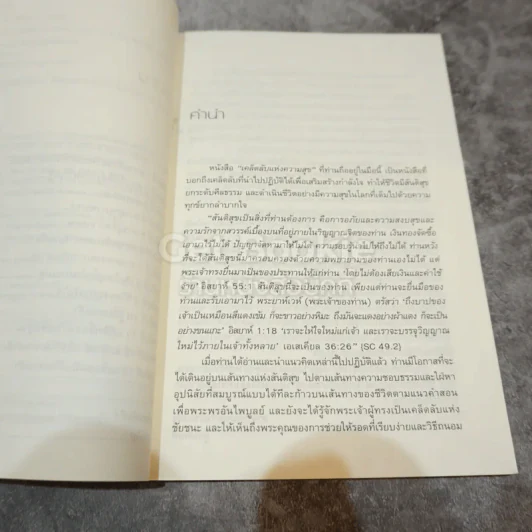 คำนำ
หนังสือ "เคล็ดลับแห่งความสุข" ที่ท่านถืออยู่ในมือนี้ เป็นหนังสือที่
บอกถึงเคล็ดลับที่นำไปปฏิบัติได้เพื่อเสริมสร้างกำลังใจ ทำให้ชีวิตมีสันติสุข
ยกระดับศีลธรรม และดำเนินชีวิตอย่างมีความสุขในโลกที่เต็มไปด้วยความ
ทุกข์ยากลำบากใจ
"สันติสุขเป็นสิ่งที่ท่านต้องการ คือการอภัยและความสงบสุขและ
ความรักจากสวรรค์เบื้องบนที่อยู่ภายในวิญญาณจิตของท่าน เงินทองจัดซื้อ
เอามาไว้ไม่ได้ ปัญญาจัดหามาให้ไม่ได้ ความรอบรู้นำไปให้ถึงไม่ได้ ท่านหวัง
ที่จะได้สันติสุขนี้มาครอบครองด้วยความพยายามของท่านเองไม่ได้ แต่
พระเจ้าทรงยื่นมาเป็นของประทานให้แก่ท่าน 'โดยไม่ต้องเสียเงินและค่าใช้
จ่าย' อิสยาห์ 55:1 สันติสุขนี้จะเป็นของท่าน เพียงแต่ท่านจะยื่นมือของ
ท่านและรับเอามาไว้ พระยาห์เวห์ (พระเจ้าของท่าน) ตรัสว่า 'ถึงบาปของ
เจ้าเป็นเหมือนสีแดงเข้ม ก็จะขาวอย่างหิมะ ถึงมันจะแดงอย่างผ้าแดง ก็จะเป็น
อย่างขนแกะ' อิสยาห์ 1:18 'เราจะให้ใจใหม่แก่เจ้า และเราจะบรรจุวิญญาณ
ใหม่ไว้ภายในเจ้าทั้งหลาย' เอเสเคียล 36:26" (SC 49.2)
เมื่อท่านได้อ่านและนำแนวคิดเหล่านี้ไปปฏิบัติแล้ว ท่านมีโอกาสที่จะ
ได้เดินอยู่บนเส้นทางแห่งสันติสุข ไปตามเส้นทางความชอบธรรมและใฝ่หา
อุปนิสัยที่สมบูรณ์แบบได้ทีละก้าวบนเส้นทางของชีวิตตามแนวคำสอน
เพื่อพระพรอันไพบูลย์ และยังจะได้รู้จักพระเจ้าผู้ทรงเป็นเคล็ดลับแห่ง
ชัยชนะ และให้เห็นถึงพระคุณของการช่วยให้รอดที่เรียบง่ายและวิธีถนอม